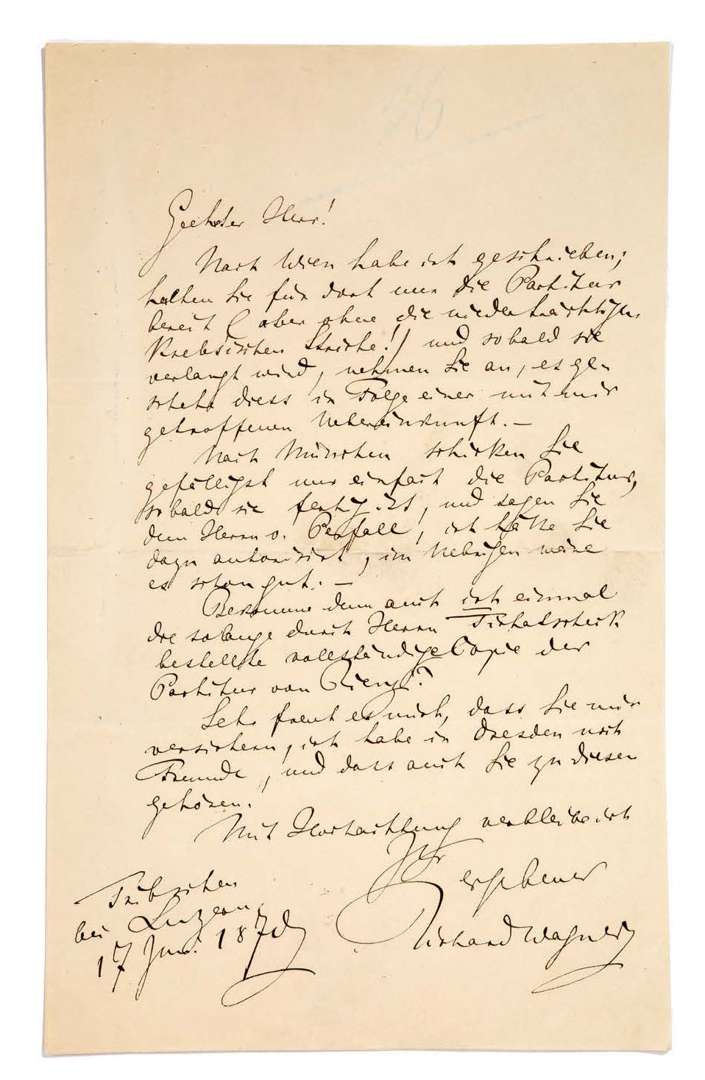 56
Geehrter Herr!
Nach Wien habe ich geschrieben;
halten Sie für dort nur die Partitur
bereit (aber ohne die niederträchtigen
Krebsischen Striche!) und sobald sie
verlangt wird, nehmen Sie an, es ge-
schehe diess in Folge einer mit mir
getroffenen Uebereinkunft. –
Nach München schicken Sie
gefälligst nur einfach die Partitur,
sobald sie fertig ist, und sagen Sie
dem Herrn v. Perfall, ich hätte Sie
dazu autorisirt, im Uebrigen wäre
es schon gut. –
Bekomme denn auch ich einmal
die solange durch Herrn Tichatscheck
bestellte vollständige Copie der
Partitur von Rienzi?
Sehr freut es mich, dass Sie mir
versichern, ich habe in Dresden noch
Freunde, und dass auch Sie zu diesen
gehören.
Mit Hochachtung verbleibe ich
Ihr
ergebener
Richard Wagner
Tribschen
bei Luzern
17 1870